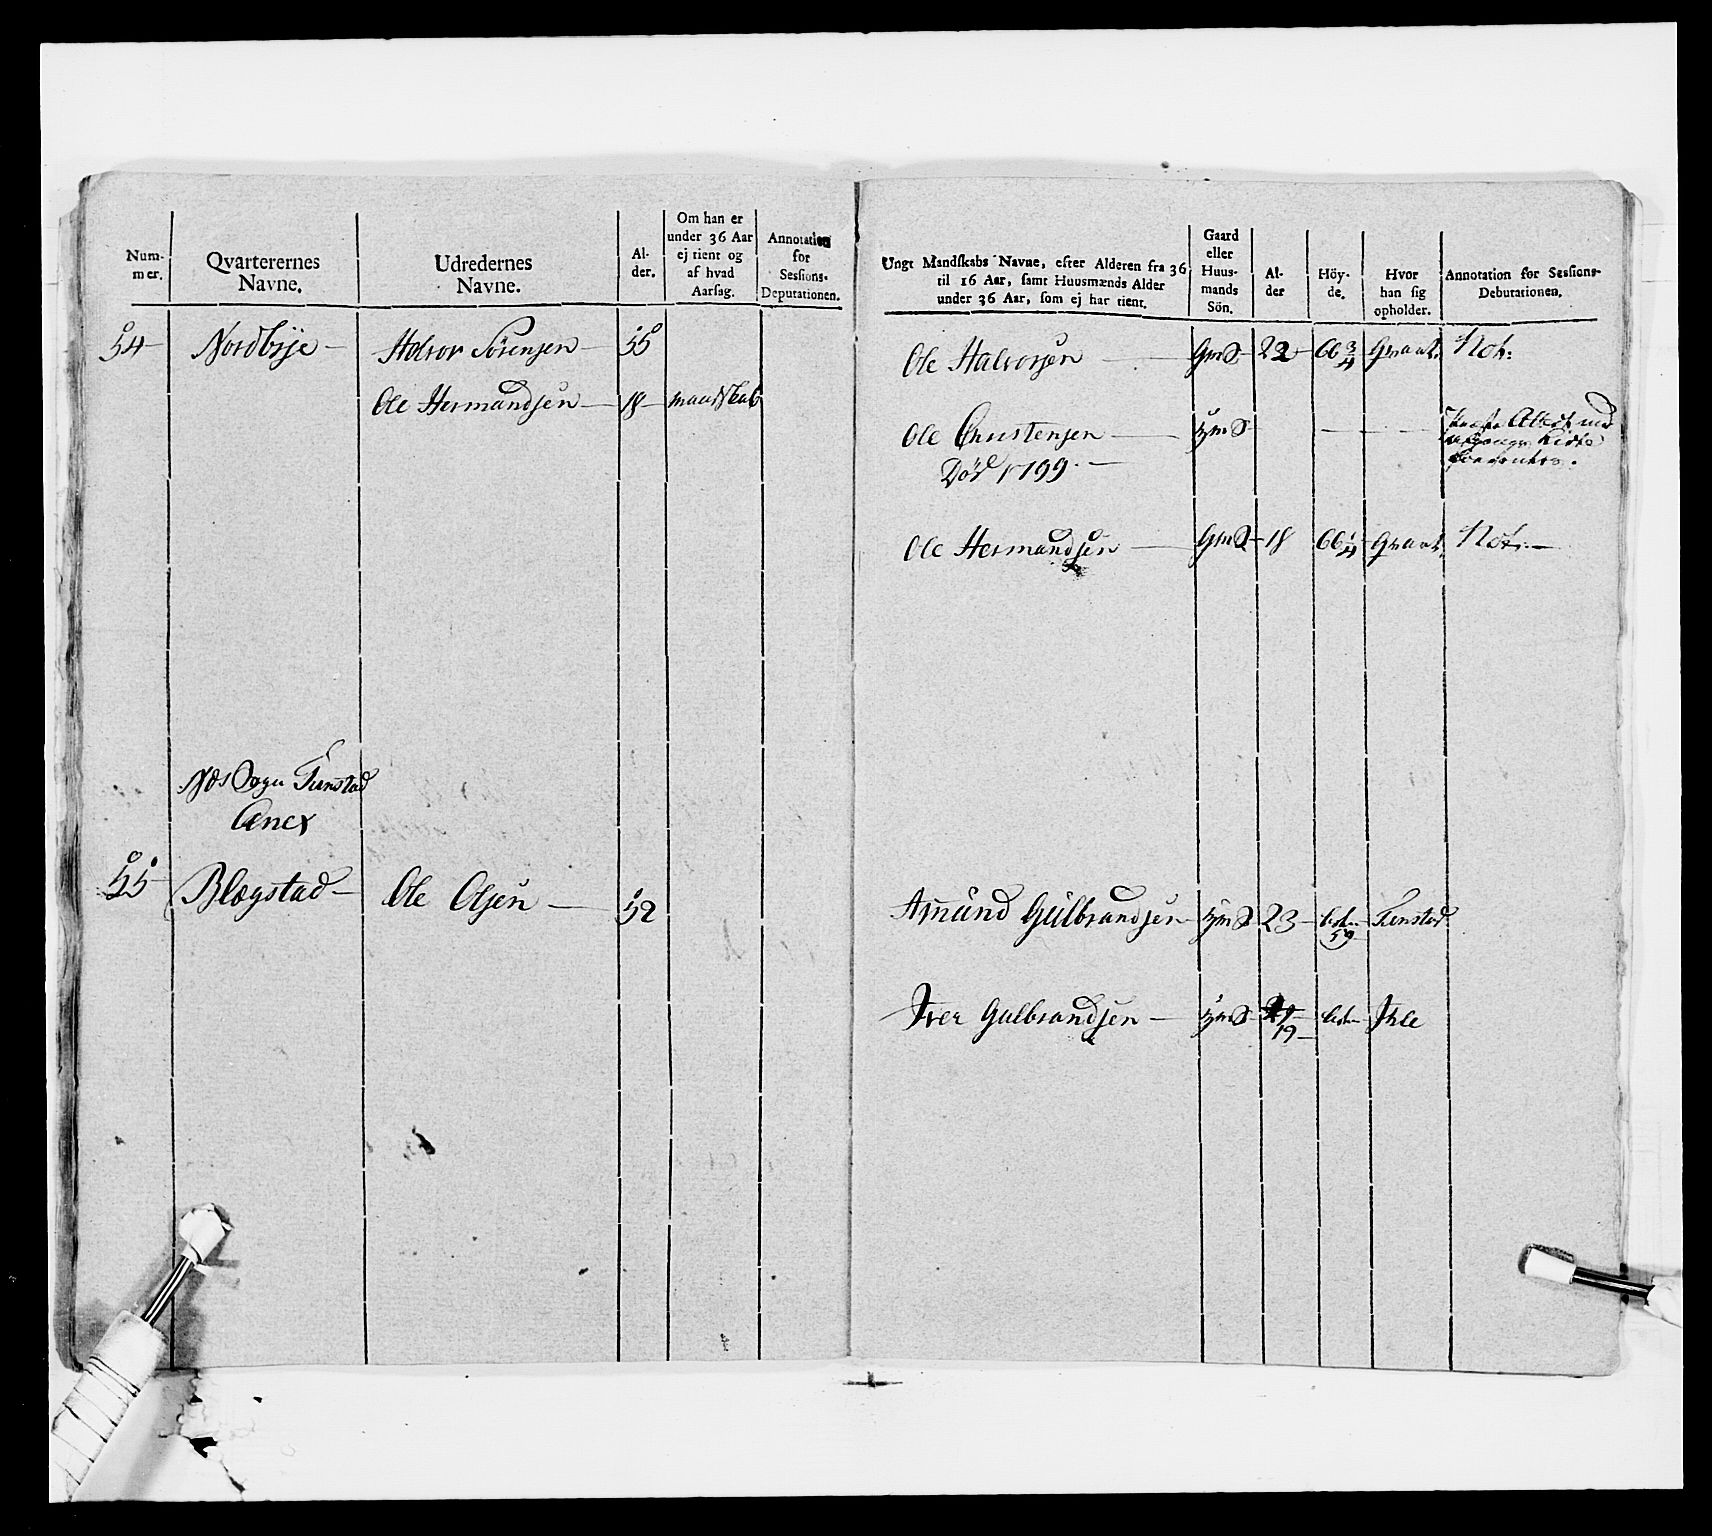 Num-
mer.
Qvarterernes
Navne.
Udredernes
Navne.
Al-
der.
Om han er
under 36 Aar
ej tient og
af hvad
Aarsag.
Annotation
for
Sessions-
Deputationen.
54 Nordbÿe Halvor Sörensen 55
Ole Hermandsen 18 mandskab
Næs Sogn Fenstad
Anex
55 Blogstad Ole Olsen 52
Ungt Mandskabs Navne, efter Alderen fra 36
til 16 Aar, samt Huusmænds Alder
under 36 Aar, som ej har tient.
Gaard
eller
Huus-
mands
Sön.
Al-
der
Höy-
de.
Hvor
han sig
opholder.
Annotation for Sessions-
Debutationen.
Ole Halvorsen GmS 22 66 3/4 Qvart. Not:
Ole Christensen HmS
Död 1799
Ole Hermandsen GmS 18 66 1/4 Qvart. Not:
Asmund Gulbrandsen HmS 23 59 Fenstad
Iver Gulbrandsen HmS 19